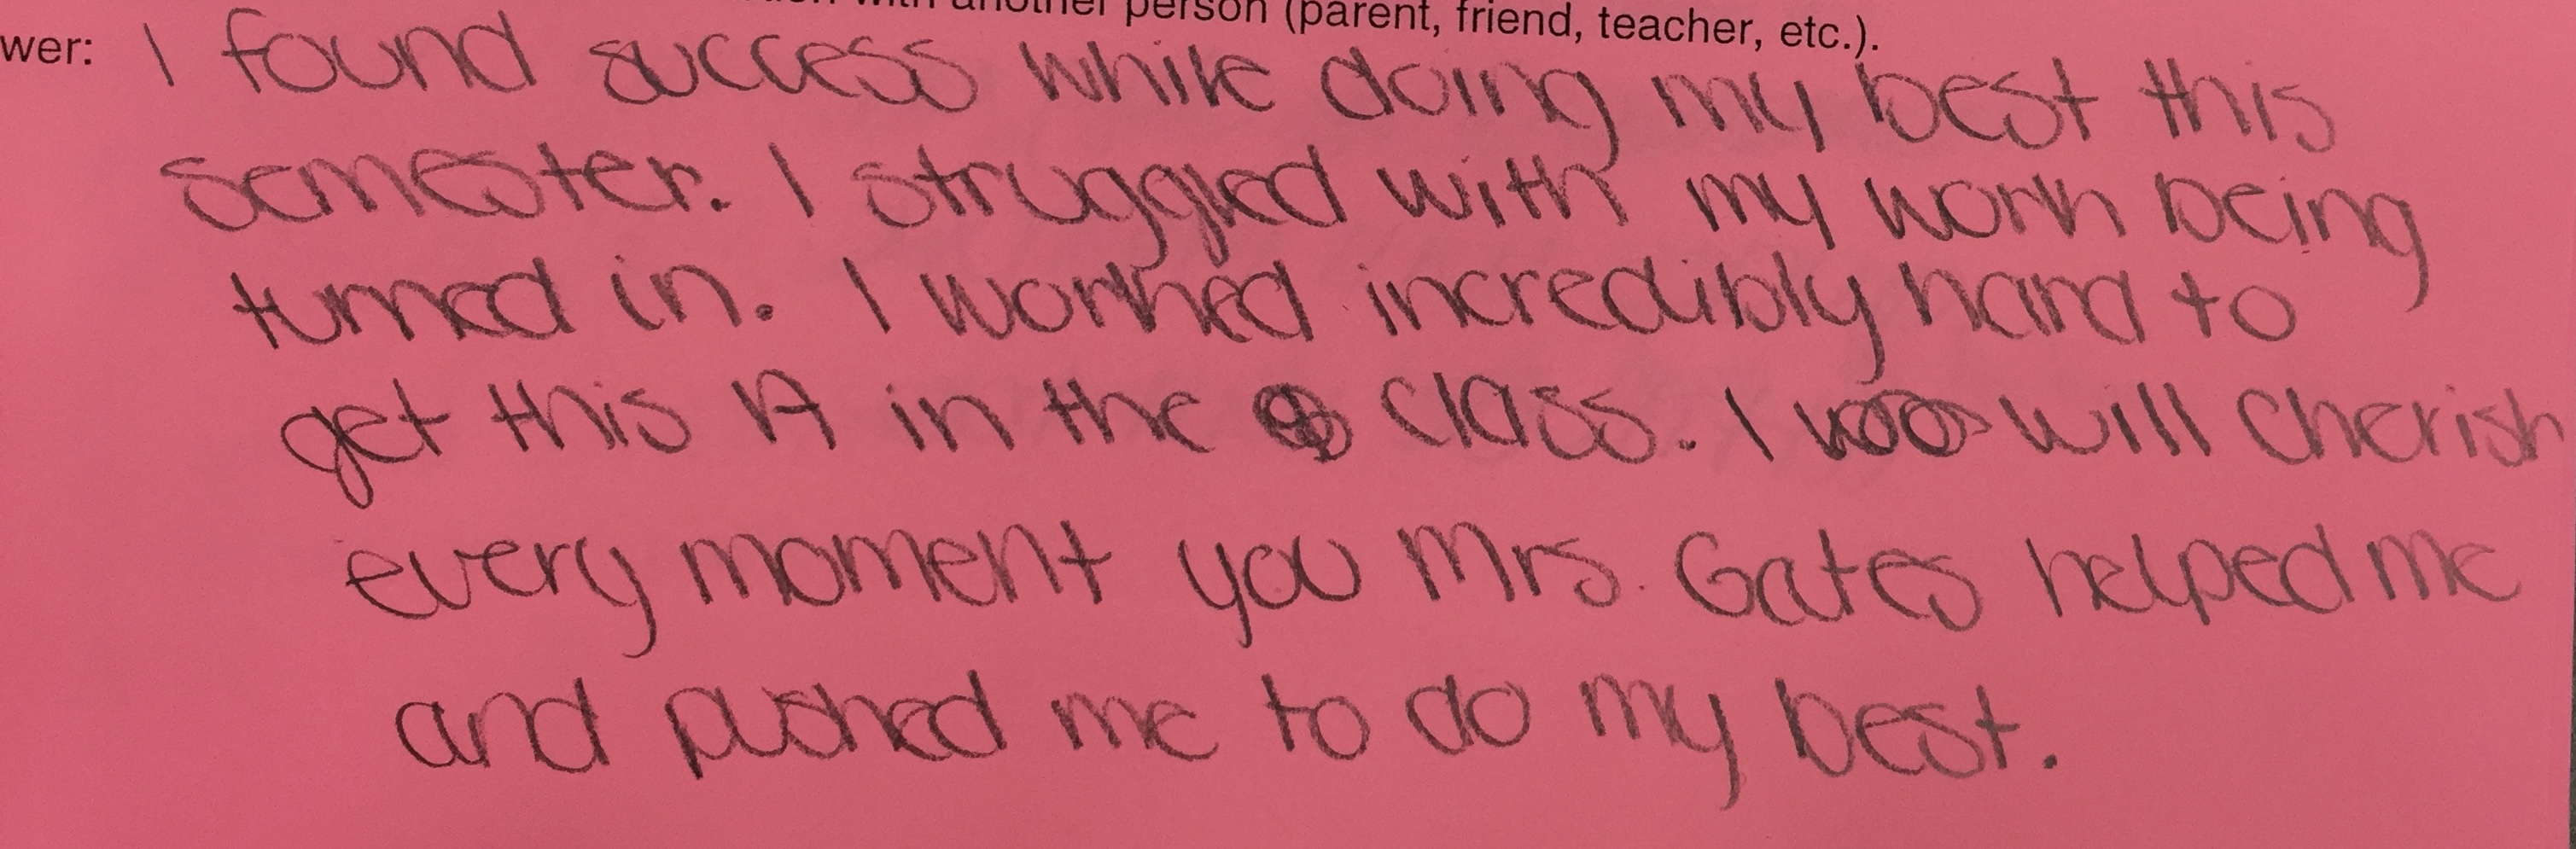 with another person (parent, friend, teacher, etc.).
wer: I found success while doing my best this
semester. I struggled with my work being
turned in. I worked incredibly hard to
get this A in the class. I will cherish
every moment you Mrs. Gates helped me
and pushed me to do my best.